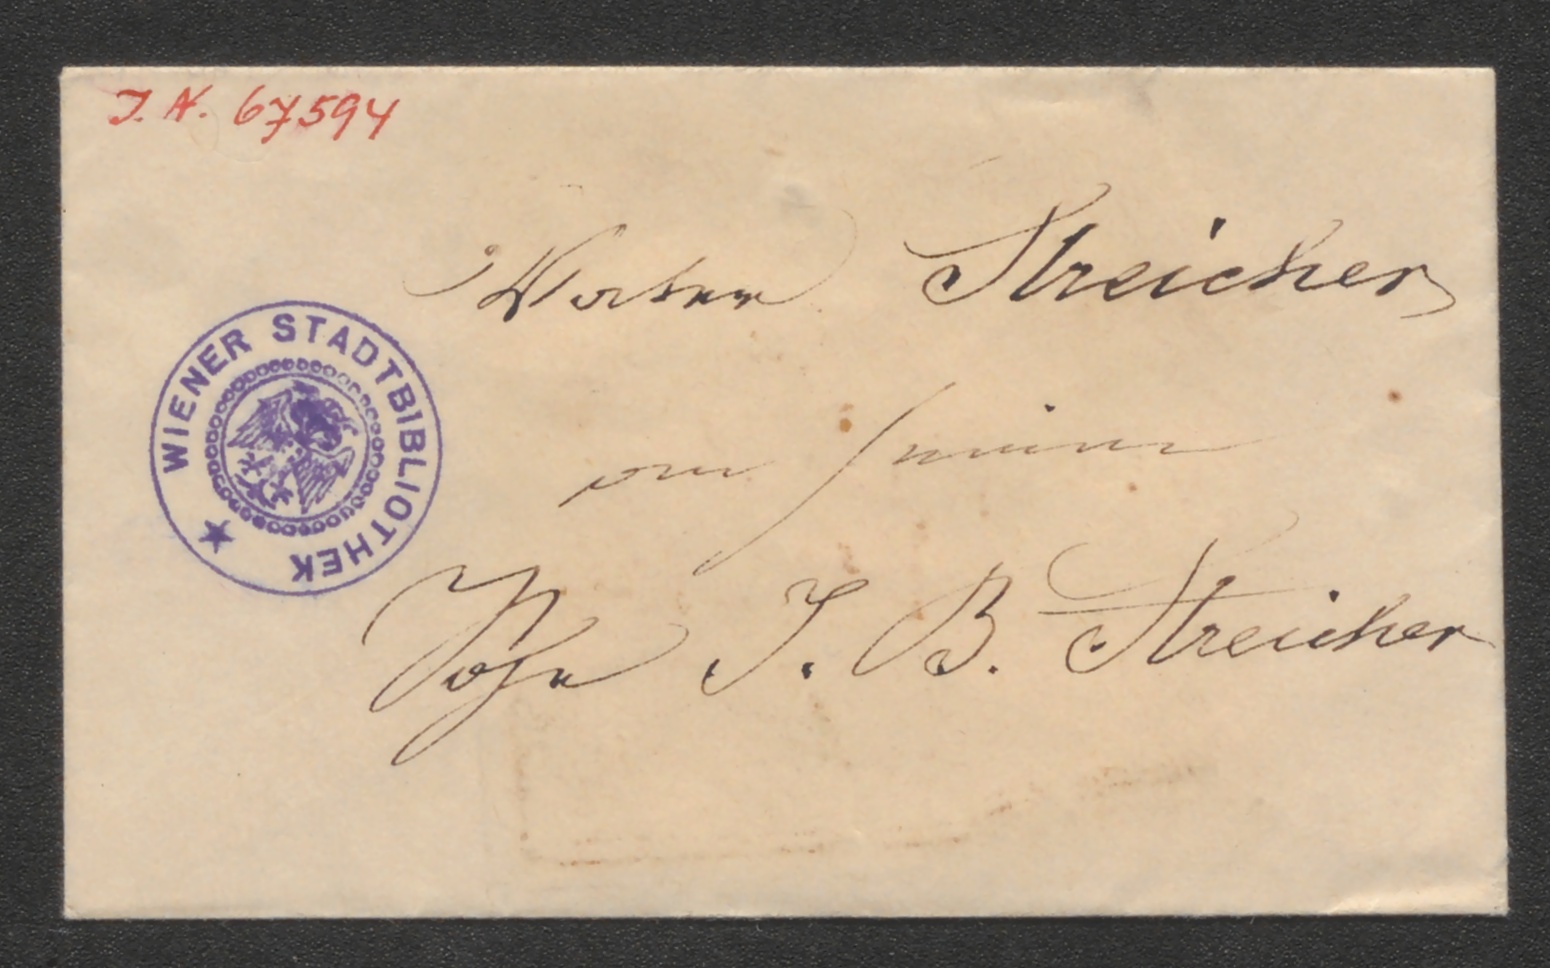 I. N. 67594
Vater Streicher
an seinen
Sohn J. B. Streicher
WIENER STADTBIBLIOTHEK